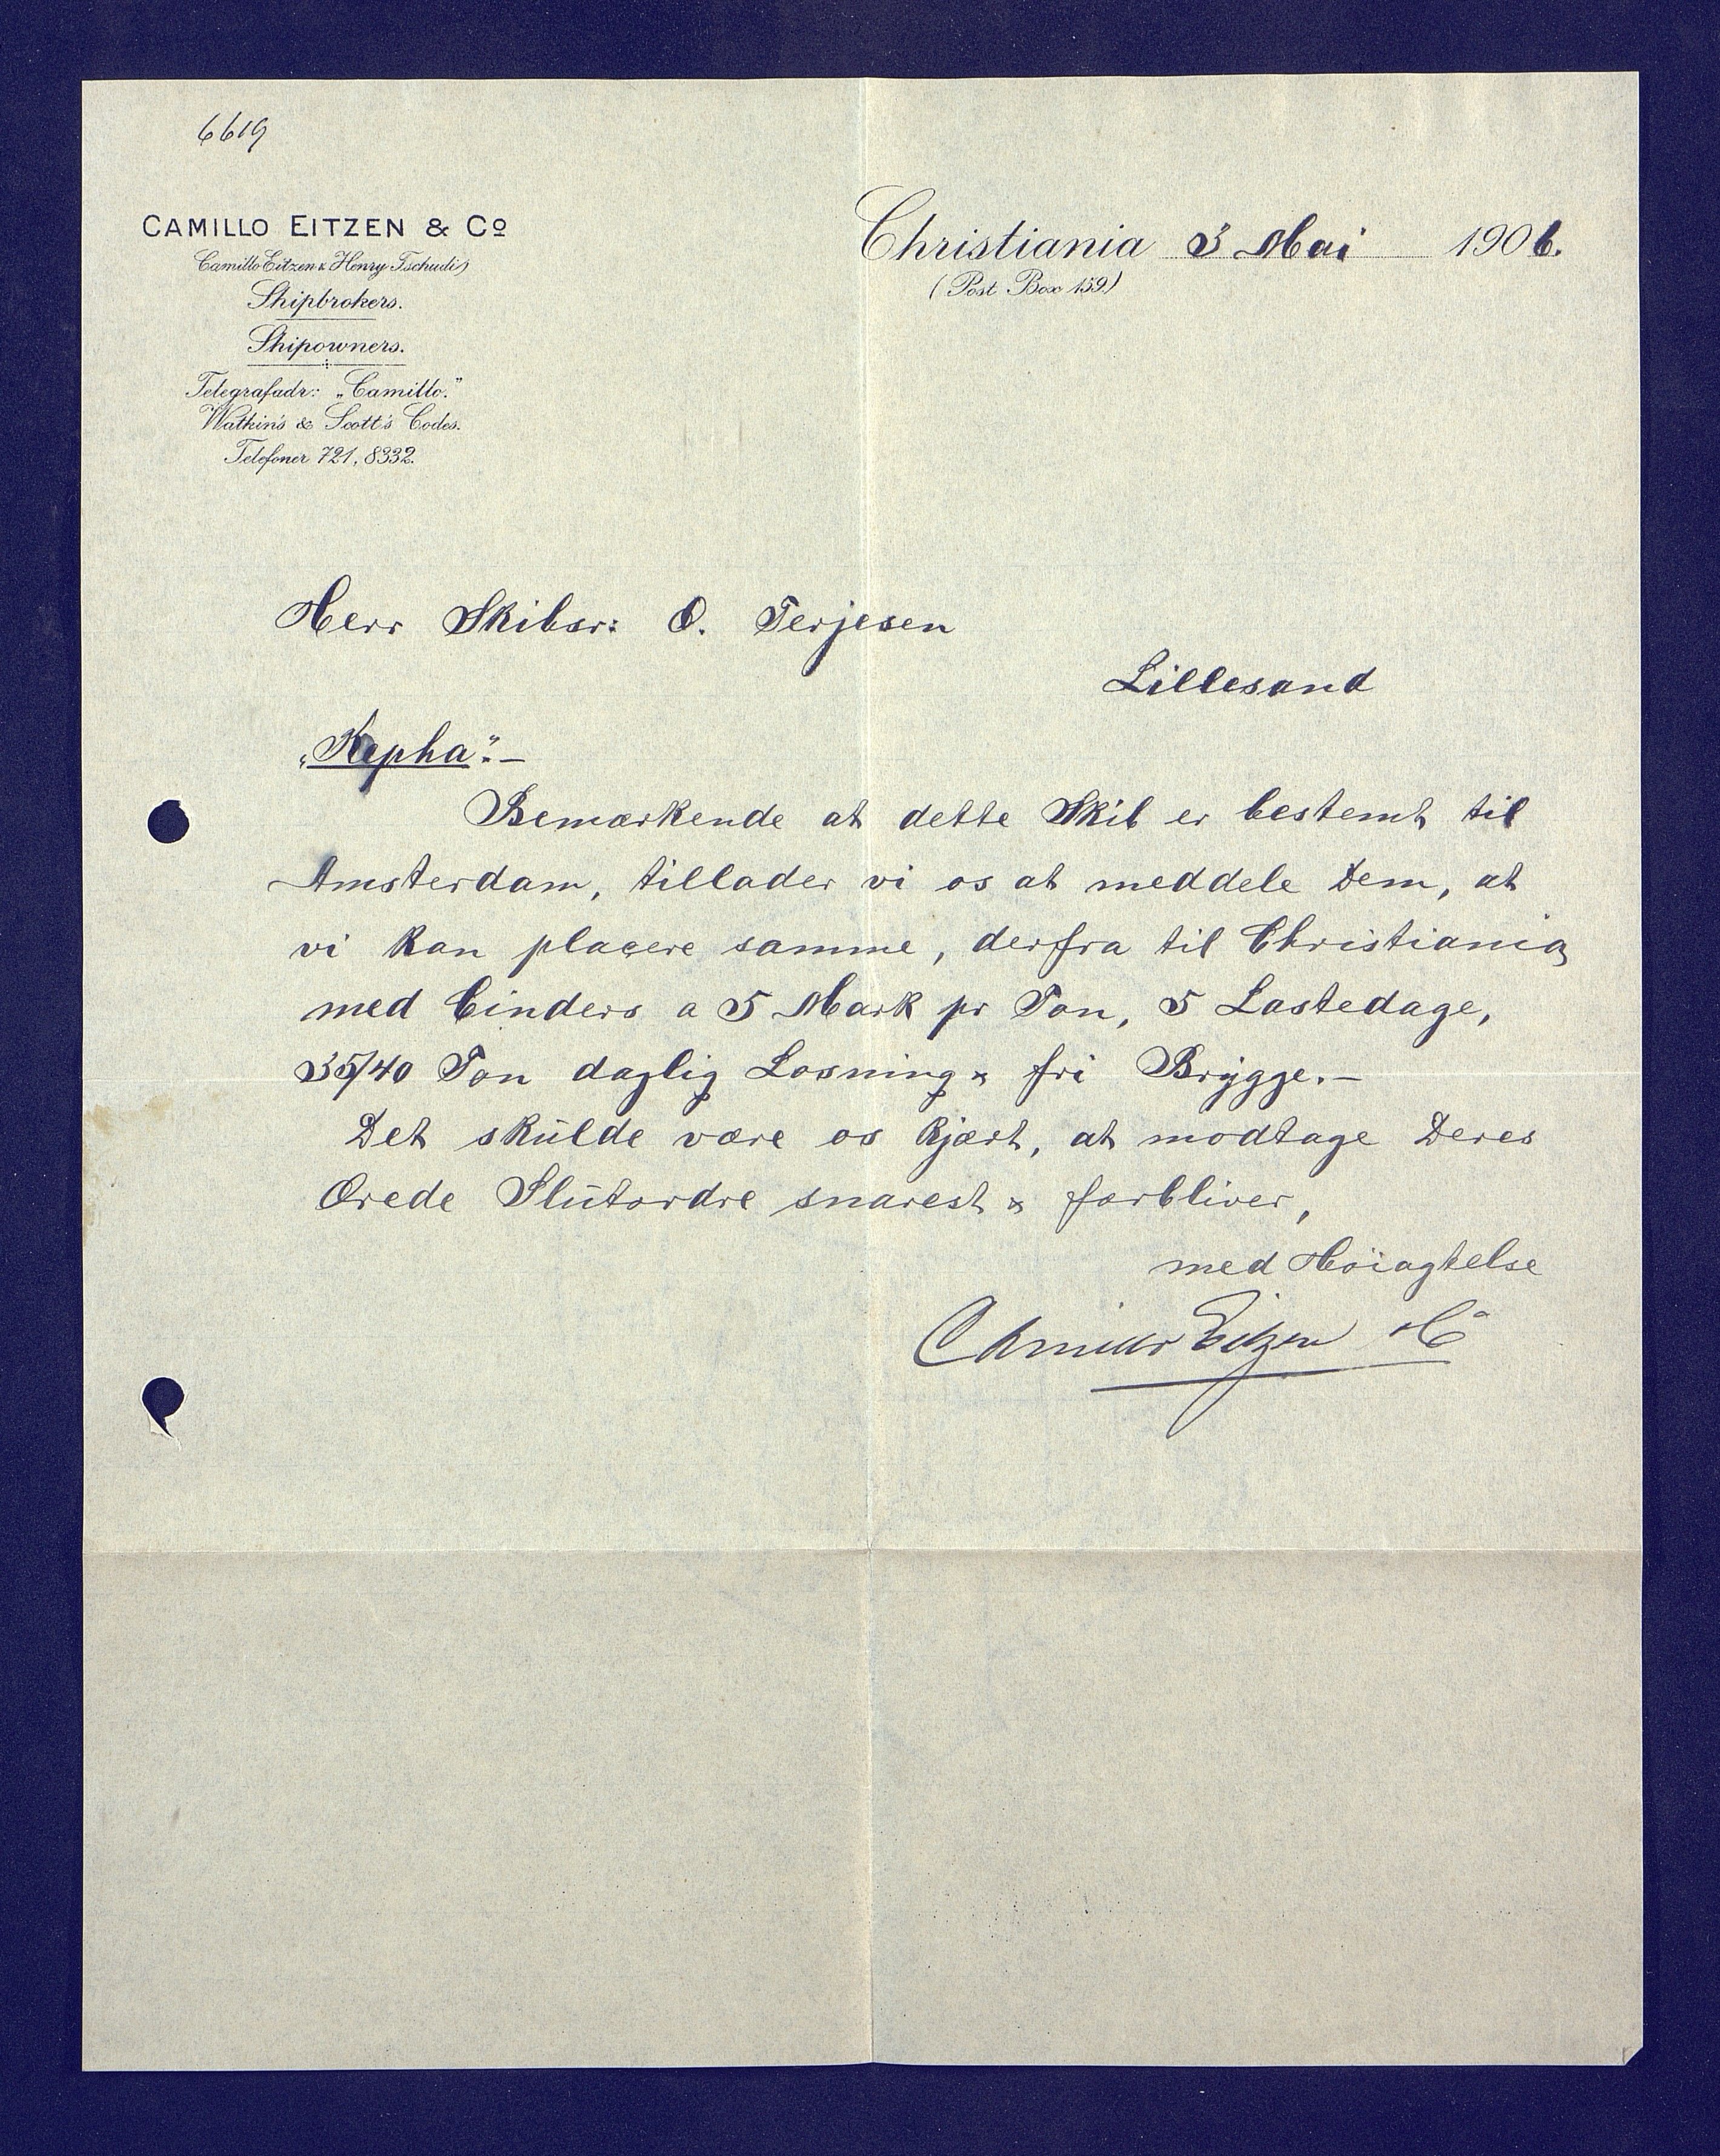 6619
CAMILLO EITZEN & Co
(Camillo Eitzen & Henry Tschudi)
Shipbrokers.
Shipowners.
Telegrafadr: „Camillo."
Watkin's & Scott's Codes.
Telefoner 721, 8332.
Christiania 3 Mai 1906.
(Post Box 159)
Herr Skibsr: O. Terjesen
Lillesand
„Kepha".—
Bemærkende at dette Skib er bestemt til
Amsterdam, tillader vi os at meddele Dem, at
vi kan placere samme, derfra til Christiania
med Cinders a 5 Mark pr Ton, 5 Lastedage,
35/40 Ton daglig Losning & fri Brygge.—
Det skulde være os kjært, at modtage Deres
Ærede Slutordre snarest & forbliver,
med Høiagtelse
Camillo Eitzen & Co